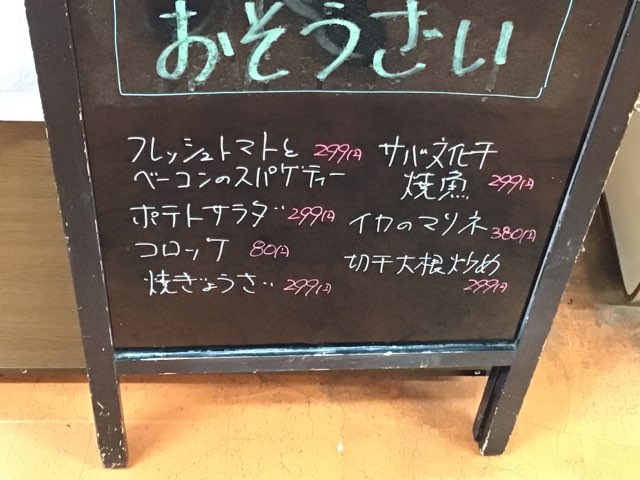 おそうざい
フレッシュトマトと 299円
ベーコンのスパゲティー
ポテトサラダ 299円
コロッケ 80円
焼ぎょうざ 299円
サバ文化干
焼魚 299円
イカのマリネ 380円
切干大根炒め
299円